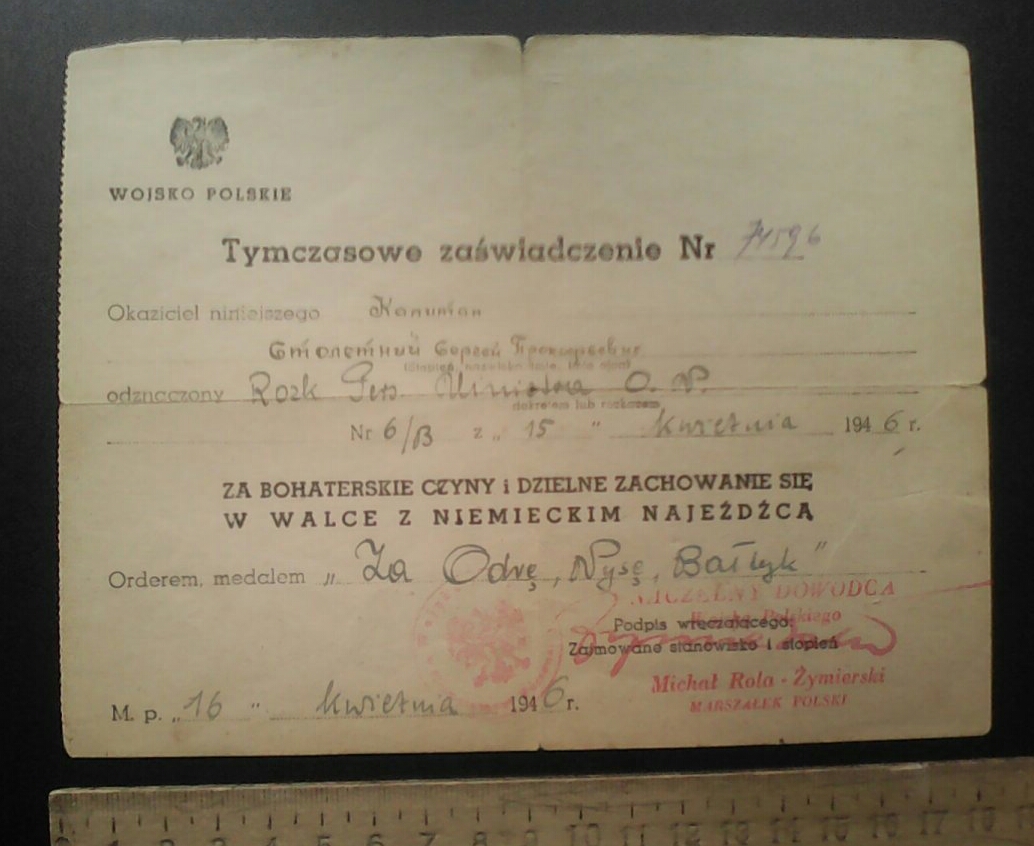 WOJSKO POLSKIE
Tymczasowe zaświadczenie Nr 74596
Okaziciel niniejszego Капитан
Столетний Сергей
(stopień, nazwisko, imię, imię ojca)
odznaczony Rozk Pers. Ministra O. N.
dekretem lub rozkazem
Nr 6/B z „ 15 " kwietnia 1946 r.
ZA BOHATERSKIE CZYNY i DZIELNE ZACHOWANIE SIĘ
W WALCE Z NIEMIECKIM NAJEŹDŹCĄ
Orderem, medalem „ Za Odrę, Nysę, Bałtyk"
NACZELNY DOWÓDCA
Wojska Polskiego
Podpis wręczającego:
Zajmowane stanowisko i stopień
Michał Rola - Żymierski
MARSZAŁEK POLSKI
M. p. „ 16 " kwietnia 1946 r.
0 1 2 3 4 5 6 7 8 9 10 11 12 13 14 15 16 17 18